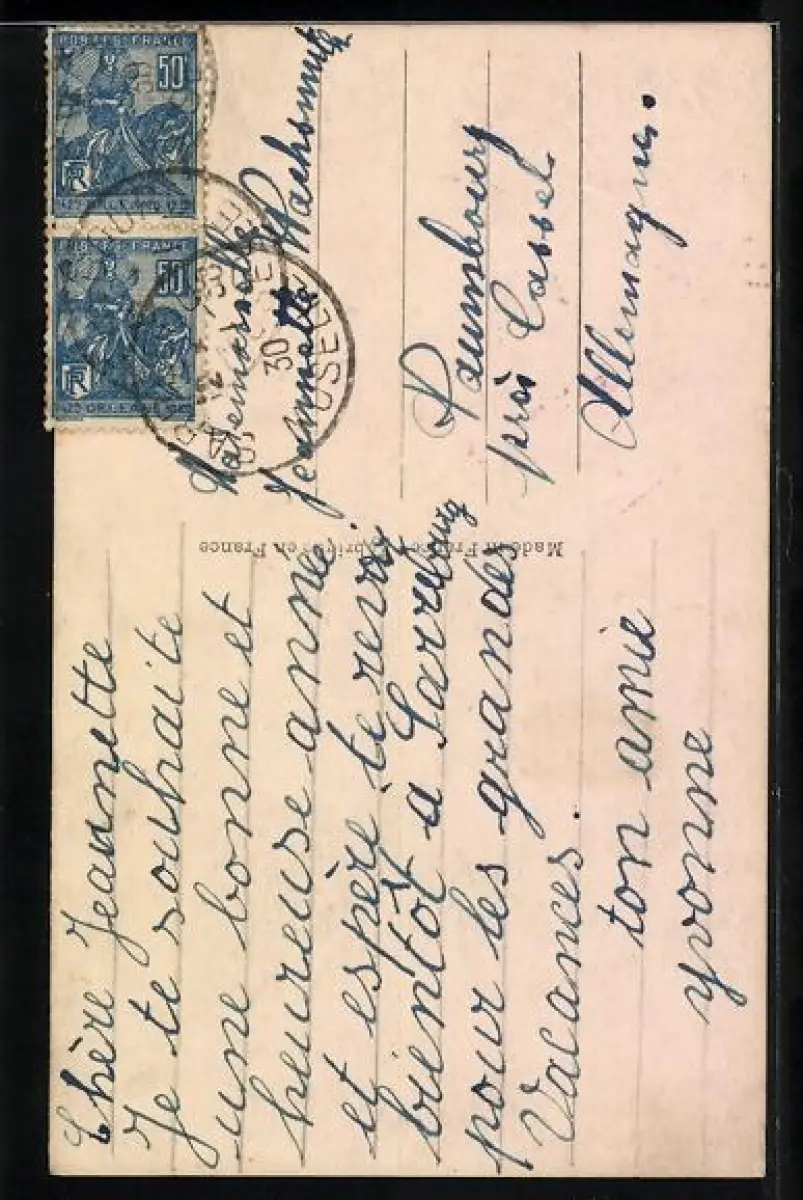 Chère Jeannette
Je te souhaite
une bonne et
heureuse année
et espère te revoir
bientôt à Sarrebourg
pour les grandes
Vacances.
ton amie
yvonne
Made in France
en France
Mademoiselle
Jeannette Wachsmuth
Naumbourg
près Cassel
Allemagne.
POSTES FRANCE
50c
RF
1429 ORLEANS 1929
POSTES FRANCE
50c
RF
1429 ORLEANS 1929
30
MOSELLE